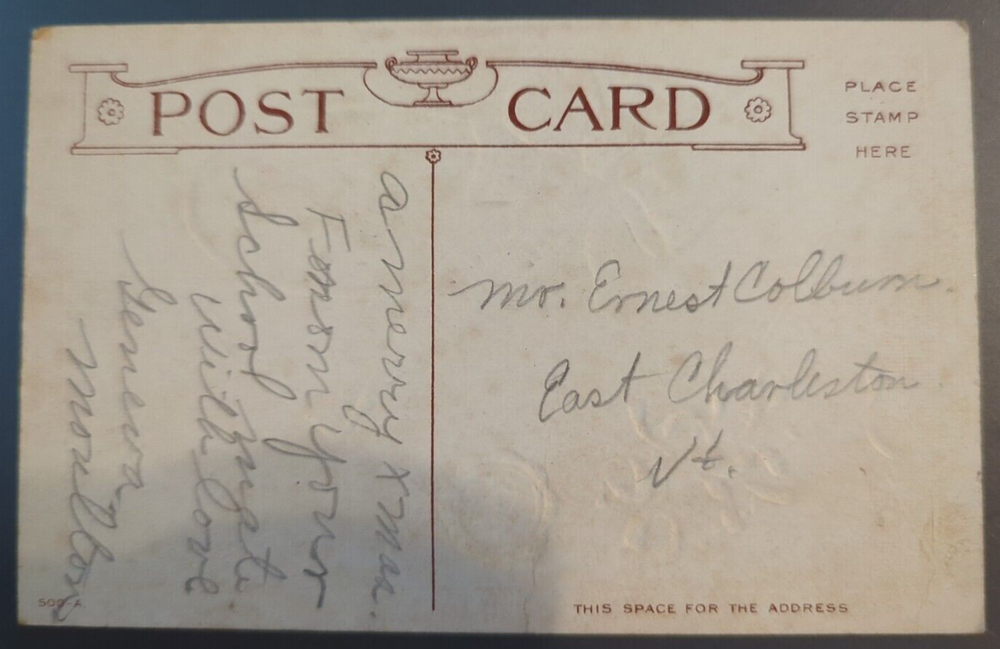 POST CARD
PLACE
STAMP
HERE
a merry Xmas.
From your
School Mate.
With love
Geneva
Moulton
Mr. Ernest Colburn.
East Charleston
Vt.
500-A
THIS SPACE FOR THE ADDRESS